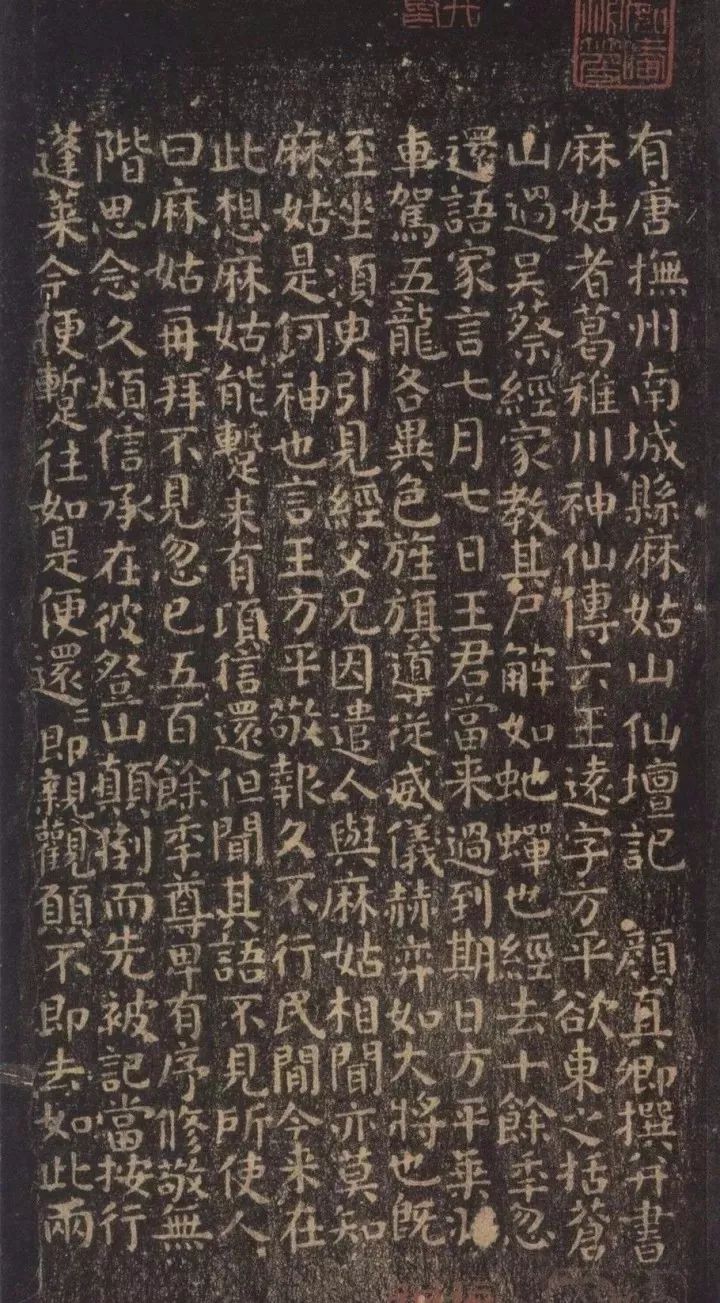 有唐撫州南城縣麻姑山仙壇記 顏真卿撰并書
麻姑者葛稚川神仙傳云王遠字方平欲東之括蒼
山過吳蔡經家教其尸解如虵蟬也經去十餘年忽
還語家言七月七日王君當来過到期日方平乗
車駕五龍各異色旌旗導從威儀赫弈如大將也既
至坐須臾引見經父兄因遣人與麻姑相聞亦莫知
麻姑是何神也言王方平敬報久不行民間今来在
此想麻姑能蹔来有項信還但聞其語不見所使人
曰麻姑再拜不見忽已五百餘年尊卑有序修敬無
階思念久煩信承在彼登山顛倒而先被記當按行
蓬萊今便蹔往如是便還還即親觀願不即去如此兩